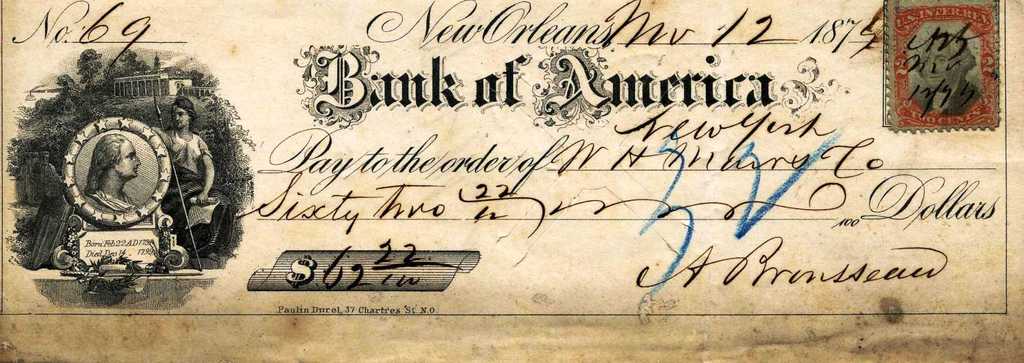 No. 69 New Orleans, Nov 12 1874
Bank of America
New York
Pay to the order of W H Co
Sixty two 22/100 Dollars
$62 22/100
A Brousseau
Born Feb 22 A.D. 1732
Died Dec 14 1799
Paulin Durel, 37 Chartres St. N.O.
U.S. INTER. REV.
TWO CENTS